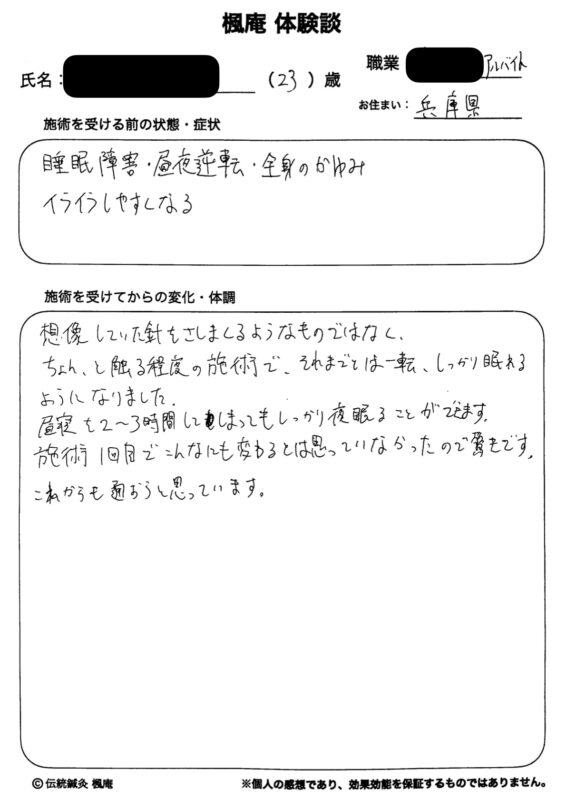 楓庵 体験談
氏名： （23）歳
職業 アルバイト
お住まい： 兵庫県
施術を受ける前の状態・症状
睡眠障害・昼夜逆転・全身のかゆみ
イライラしやすくなる
施術を受けてからの変化・体調
想像していた針をさしまくるようなものではなく、
ちょん、と触る程度の施術で、それまでとは一転、しっかり眠れる
ようになりました。
昼寝を2〜3時間してしまってもしっかり夜眠ることができます。
施術1回目でこんなにも変わるとは思っていなかったので驚きです。
これからも通おうと思っています。
©伝統鍼灸 楓庵
※個人の感想であり、効果効能を保証するものではありません。